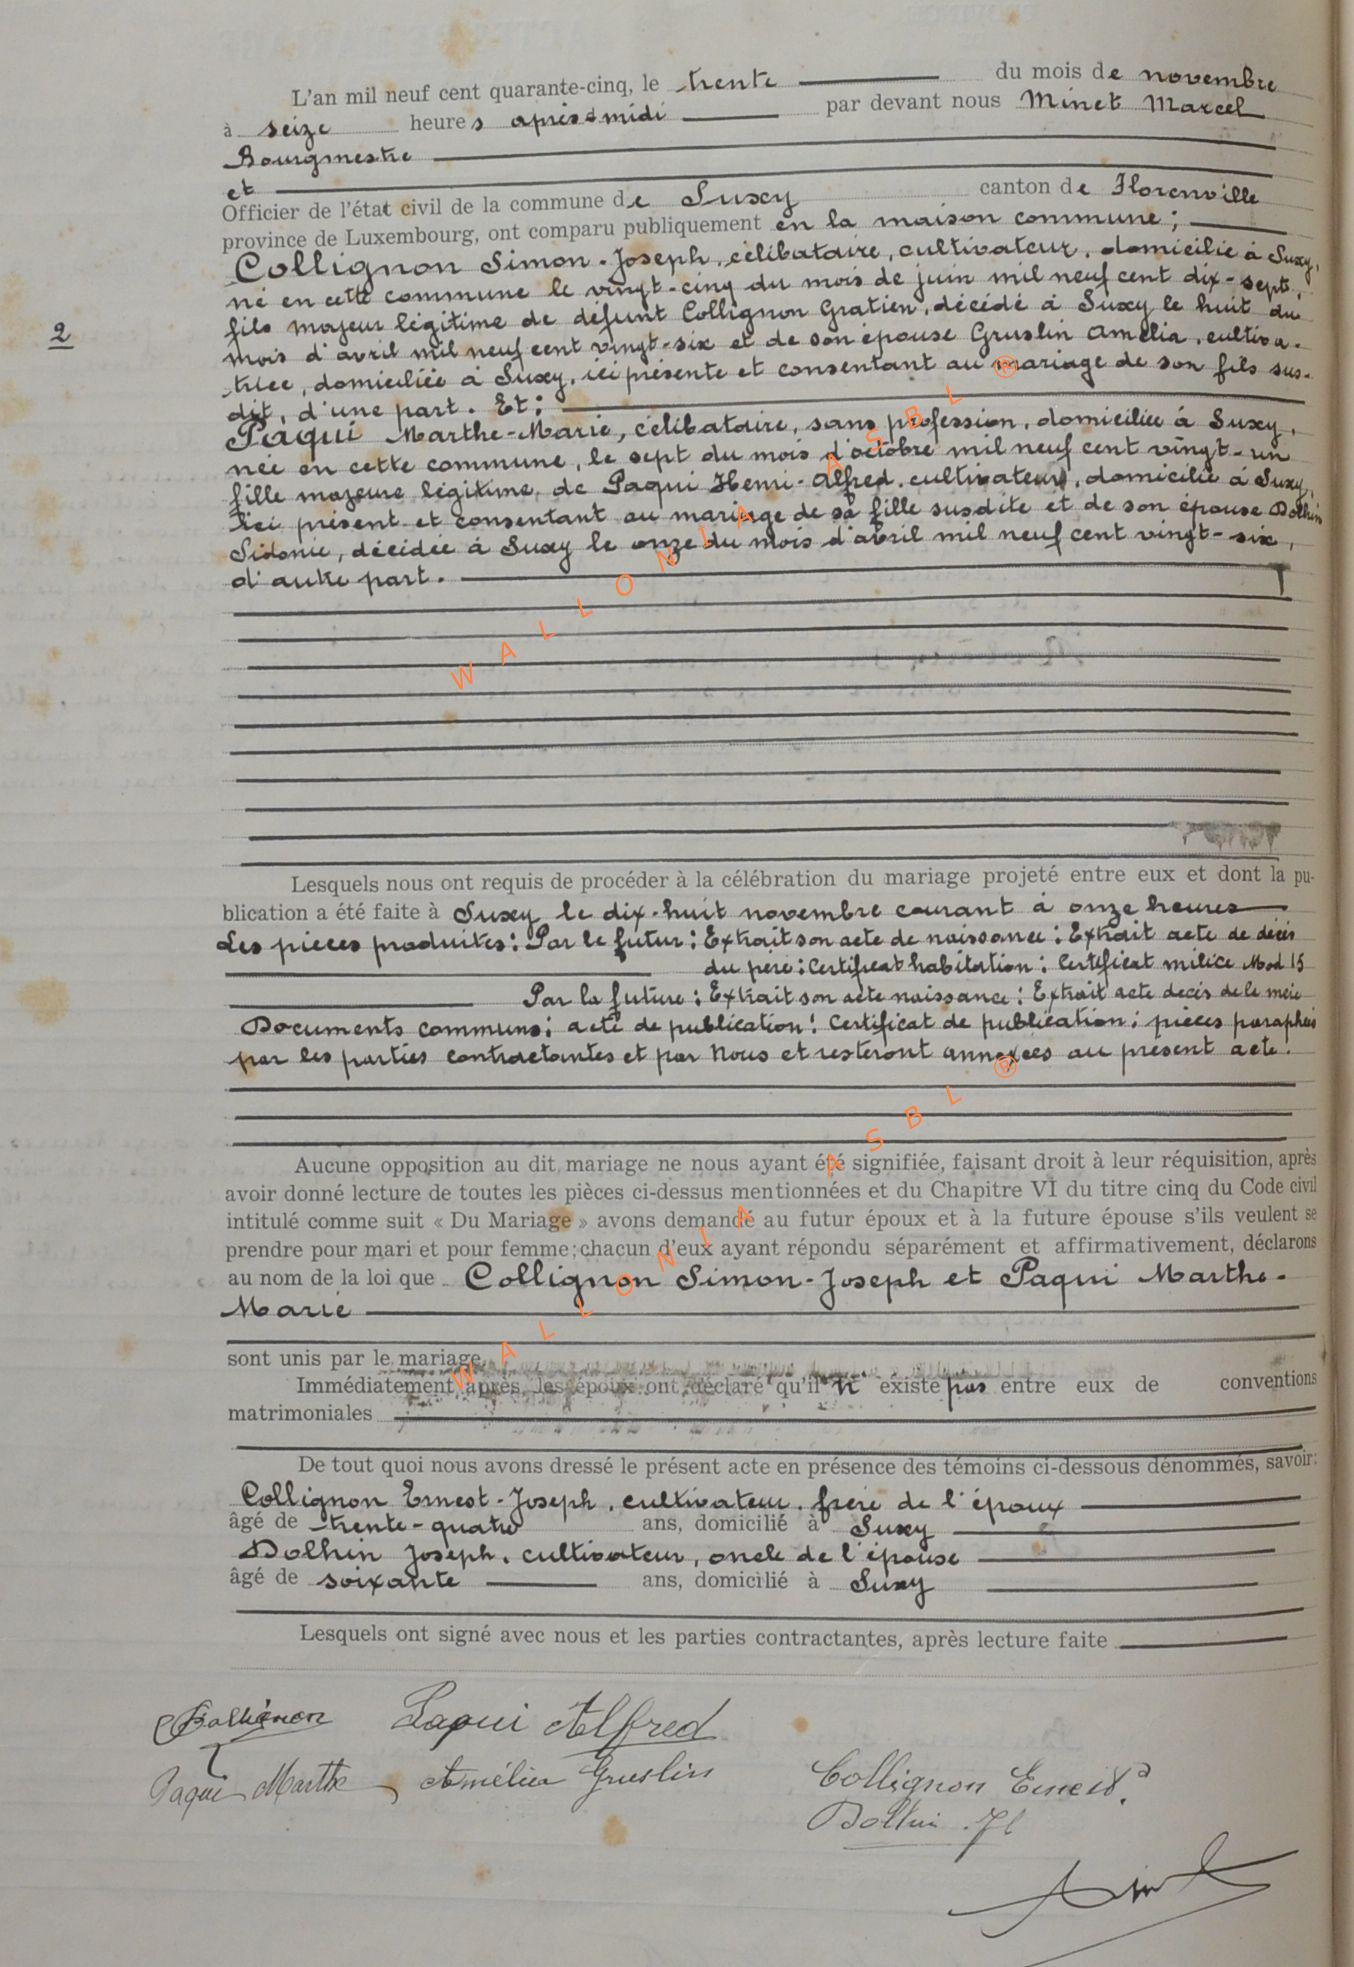 L'an mil neuf cent quarante-cinq, le trente du mois de novembre
à seize heures après-midi par devant nous Minet Marcel
Bourgmestre
et
Officier de l'état civil de la commune de Suxy canton de Florenville
province de Luxembourg, ont comparu publiquement en la maison commune ;
Collignon Simon-Joseph, célibataire, cultivateur, domicilié à Suxy,
né en cette commune le vingt-cinq du mois de juin mil neuf cent dix-sept,
2
fils majeur légitime de défunt Collignon Gratien, décédé à Suxy le huit du
mois d'avril mil neuf cent vingt-six et de son épouse Gruslin Amélia, cultiva-
trice, domiciliée à Suxy, ici présente et consentant au mariage de son fils sus-
dit, d'une part. Et :
Paqui Marthe-Marie, célibataire, sans profession, domiciliée à Suxy,
née en cette commune, le sept du mois d'octobre mil neuf cent vingt-un
fille majeure légitime de Paqui Henri-Alfred, cultivateur, domicilié à Suxy,
ici présent et consentant au mariage de sa fille susdite et de son épouse Dolhin
Sidonie, décédée à Suxy le onze du mois d'avril mil neuf cent vingt-six,
d'autre part.
Lesquels nous ont requis de procéder à la célébration du mariage projeté entre eux et dont la pu-
blication a été faite à Suxy le dix-huit novembre courant à onze heures
Les pièces produites : Par le futur : Extrait son acte de naissance : Extrait acte de décès
du père : Certificat habitation : Certificat milice Mod 15
Par la future : Extrait son acte naissance : Extrait acte decès de le mère
Documents communs : acte de publication : Certificat de publication : pièces paraphés
par les parties contractantes et par Nous et resteront annexées au présent acte.
Aucune opposition au dit mariage ne nous ayant été signifiée, faisant droit à leur réquisition, après
avoir donné lecture de toutes les pièces ci-dessus mentionnées et du Chapitre VI du titre cinq du Code civil
intitulé comme suit « Du Mariage » avons demandé au futur époux et à la future épouse s'ils veulent se
prendre pour mari et pour femme ; chacun d'eux ayant répondu séparément et affirmativement, déclarons
au nom de la loi que Collignon Simon-Joseph et Paqui Marthe-
Marie
sont unis par le mariage.
Immédiatement après, les époux ont déclaré qu'il n' existe pas entre eux de conventions
matrimoniales
De tout quoi nous avons dressé le présent acte en présence des témoins ci-dessous dénommés, savoir :
Collignon Ernest-Joseph, cultivateur, frère de l'époux
âgé de trente-quatre ans, domicilié à Suxy
Dolhin Joseph, cultivateur, oncle de l'épouse
âgé de soixante ans, domicilié à Suxy
Lesquels ont signé avec nous et les parties contractantes, après lecture faite
Collignon Paqui Alfred
Paqui Marthe Amélia Gruslin Collignon Ernest
Dolhin
WALLONIA ASBL ®
WALLONIA ASBL ®